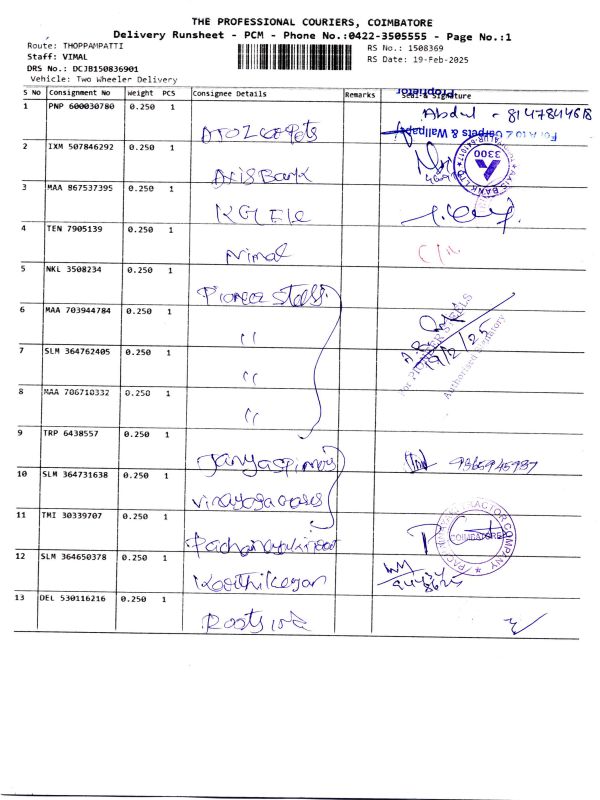 THE PROFESSIONAL COURIERS, COIMBATORE
Delivery Runsheet - PCM - Phone No.:0422-3505555 - Page No.:1
Route: THOPPAMPATTI
RS No.: 1508369
Staff: VIMAL
RS Date: 19-Feb-2025
DRS No.: DCJB150836901
Vehicle: Two Wheeler Delivery
S No Consignment No Weight PCS Consignee Details Remarks Seal & Signature
Proprietor
1 PNP 600030780 0.250 1 Abdul - 8147844618
A TO Z carpets For A to Z Carpets & Wallpaper
2 IXM 507846292 0.250 1
Axis Bank AXIS BANK LTD 3300
3 MAA 867537395 0.250 1
KGI Ele
4 TEN 7905139 0.250 1
Nimal
5 NKL 3508234 0.250 1
Pioneer Steels
6 MAA 703944784 0.250 1
"
For PIONEER STEELS
19/2/25
Authorised Signatory
7 SLM 364762405 0.250 1
"
8 MAA 706710332 0.250 1
"
9 TRP 6438557 0.250 1
9865945987
10 SLM 364731638 0.250 1
11 TMI 30339707 0.250 1
COIMBATORE
12 SLM 364650378 0.250 1
Karthikeyan
13 DEL 530116216 0.250 1
Roots ind